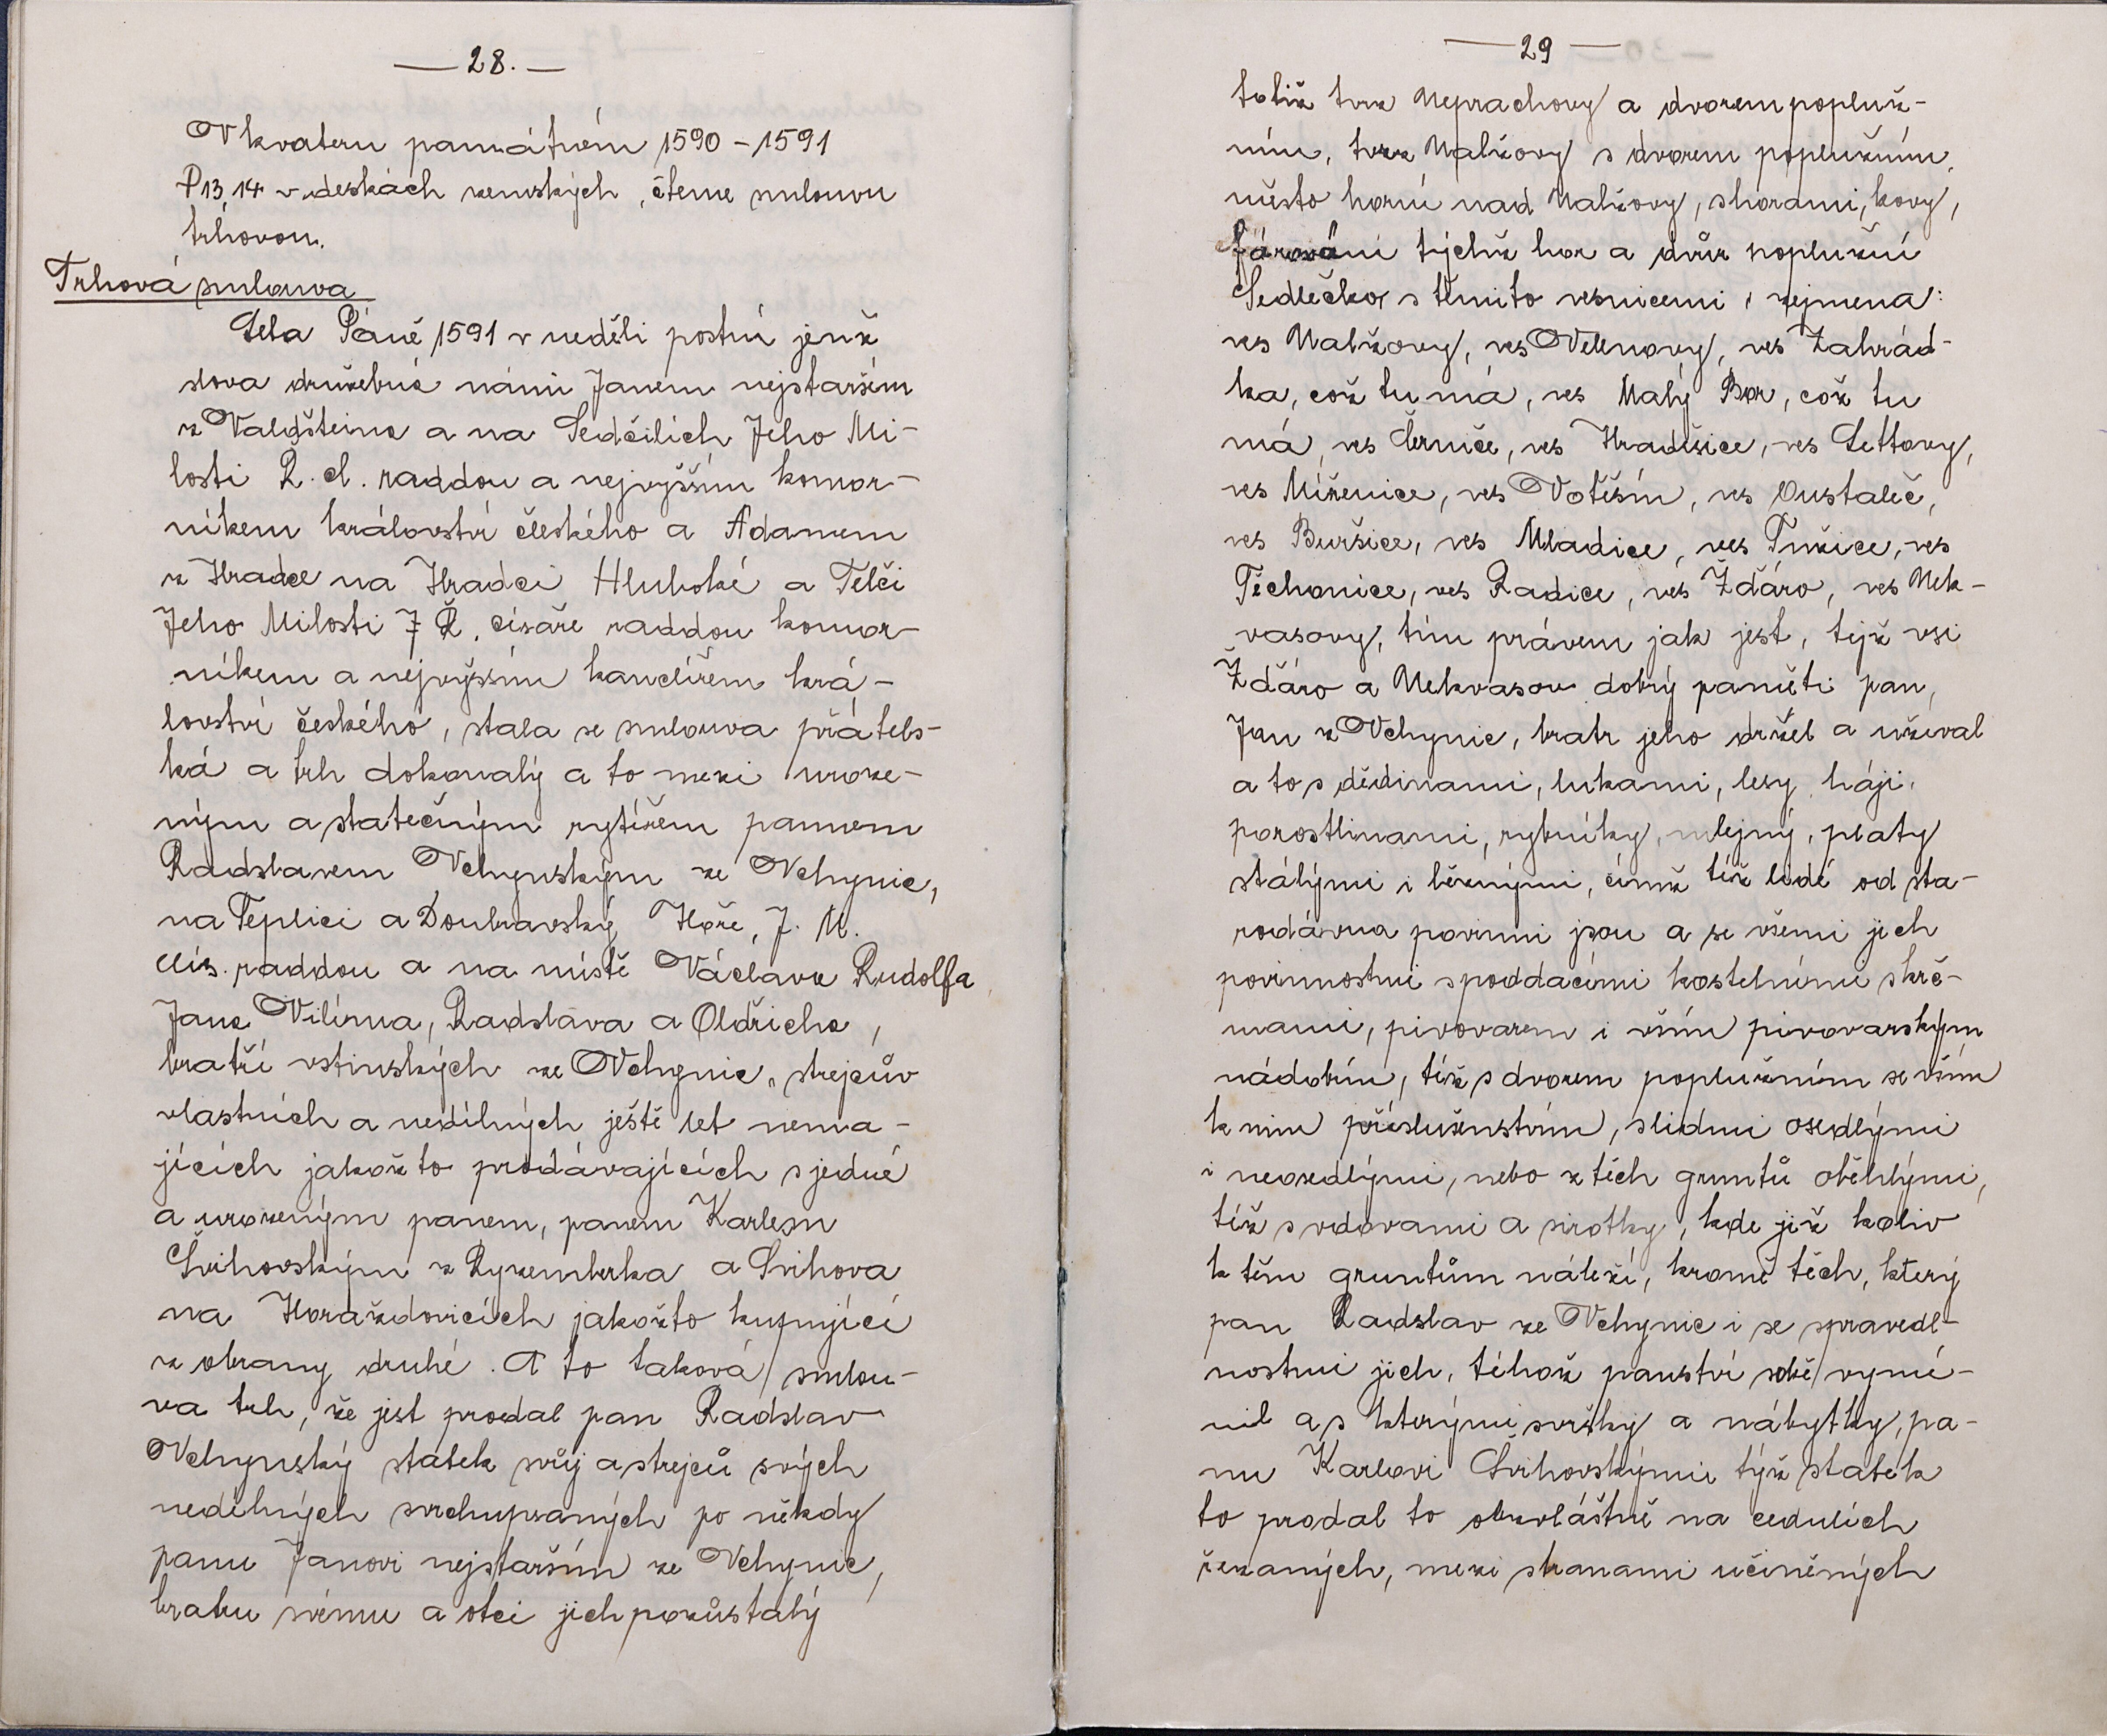 — 28. —
V kvateru památném 1590 – 1591
P 13, 14 v deskách zemských, čteme smlouvu
trhovou.
Trhová smlouva
Leta Páně 1591 v neděli postní jenž
slova družebná námi Janem nejstarším
z Valdšteina a na Sedčilich Jeho Mi-
losti R. C. raddou a nejvyšším komor-
níkem království českého a Adamem
z Hradce na Hradci Hluboké a Telči
Jeho Milosti J Ř. císaře raddou komor-
níkem a nejvyšším kanclířem krá-
lovství českého, stala se smlouva přátels-
ká a trh dokonalý a to mezi uroze-
ným a statečným rytířem pannem
Radslavem Vchynským ze Vchynic,
na Teplici a Doubravský Hoře, J. M.
Cís. raddou a na místě Václava Rudolfa
Jana Vilíma, Radslava a Oldřicha,
bratří vstinských ze Vchynic, strejcův
vlastních a nedílných ještě let nema-
jících jakožto prodávajících s jedné
a urozeným panem, panem Karlem
Švihovským z Ryzemberka a Švihova
na Horažďovicích jakožto kupující
z strany druhé. A to taková smlou-
va trh, že jest prodal pan Radslav
Vchynský statek svůj a strejců svých
nedílných svrchupsaných po někdy
panu Janovi nejstarším ze Vchynic,
bratru svému a otci jich pozůstalý
— 29 —
totiž tvrz Neprachovy a dvorem popluž-
ním, tvrz Nalžovy s dvorem poplužním,
město horní nad Nalžovy, s horami, kovy,
fárování týchž hor a dvůr poplužní
Sedlečko, s těmito vesnicemi, zejmena:
ves Nalžovy, ves Velenovy, ves Zahrád-
ka, což tu má, ves Malý Bor, což tu
má, ves Černíče, ves Hradišice, ves Lettovy,
ves Míženice, ves Votěšín, ves Oustaleč,
ves Buršice, ves Mladice, ves Tužice, ves
Těchonice, ves Radice, ves Žďáro, ves Nek-
vasovy, tím právem jak jest, tejž vsi
Žďáro a Nekvasov dobrý paměti pan,
Jan z Vchynic, bratr jeho držel a užíval
a to s dědinami, lukami, lesy, háji,
porostlinami, rybníky, mlejný, platy
stálými i běžnými, čímž též lidé od sta-
rodávna povinni jsou a se všemi jich
povinnostmi s poddacími kostelními s krč-
mami, pivovarem i vším pivovarským
nádobím, též s dvorem poplužním se vším
k nim příslušenstvím, s lidmi osedlými
i neosedlými, nebo z těch gruntů oběhlými,
též s vdovami a sirotky, kde již koliv
k těm gruntům náleží, kromě těch, který
pan Radslav ze Vchynic i se spravedl-
nostmi jich, téhož panství sobě vymí-
nil a s kterými svršky a nábytky, pa-
nu Karlovi Švihovskýmu týž statek
to prodal to obzvláštně na cedulích
řezaných, mezi stranami učiněných